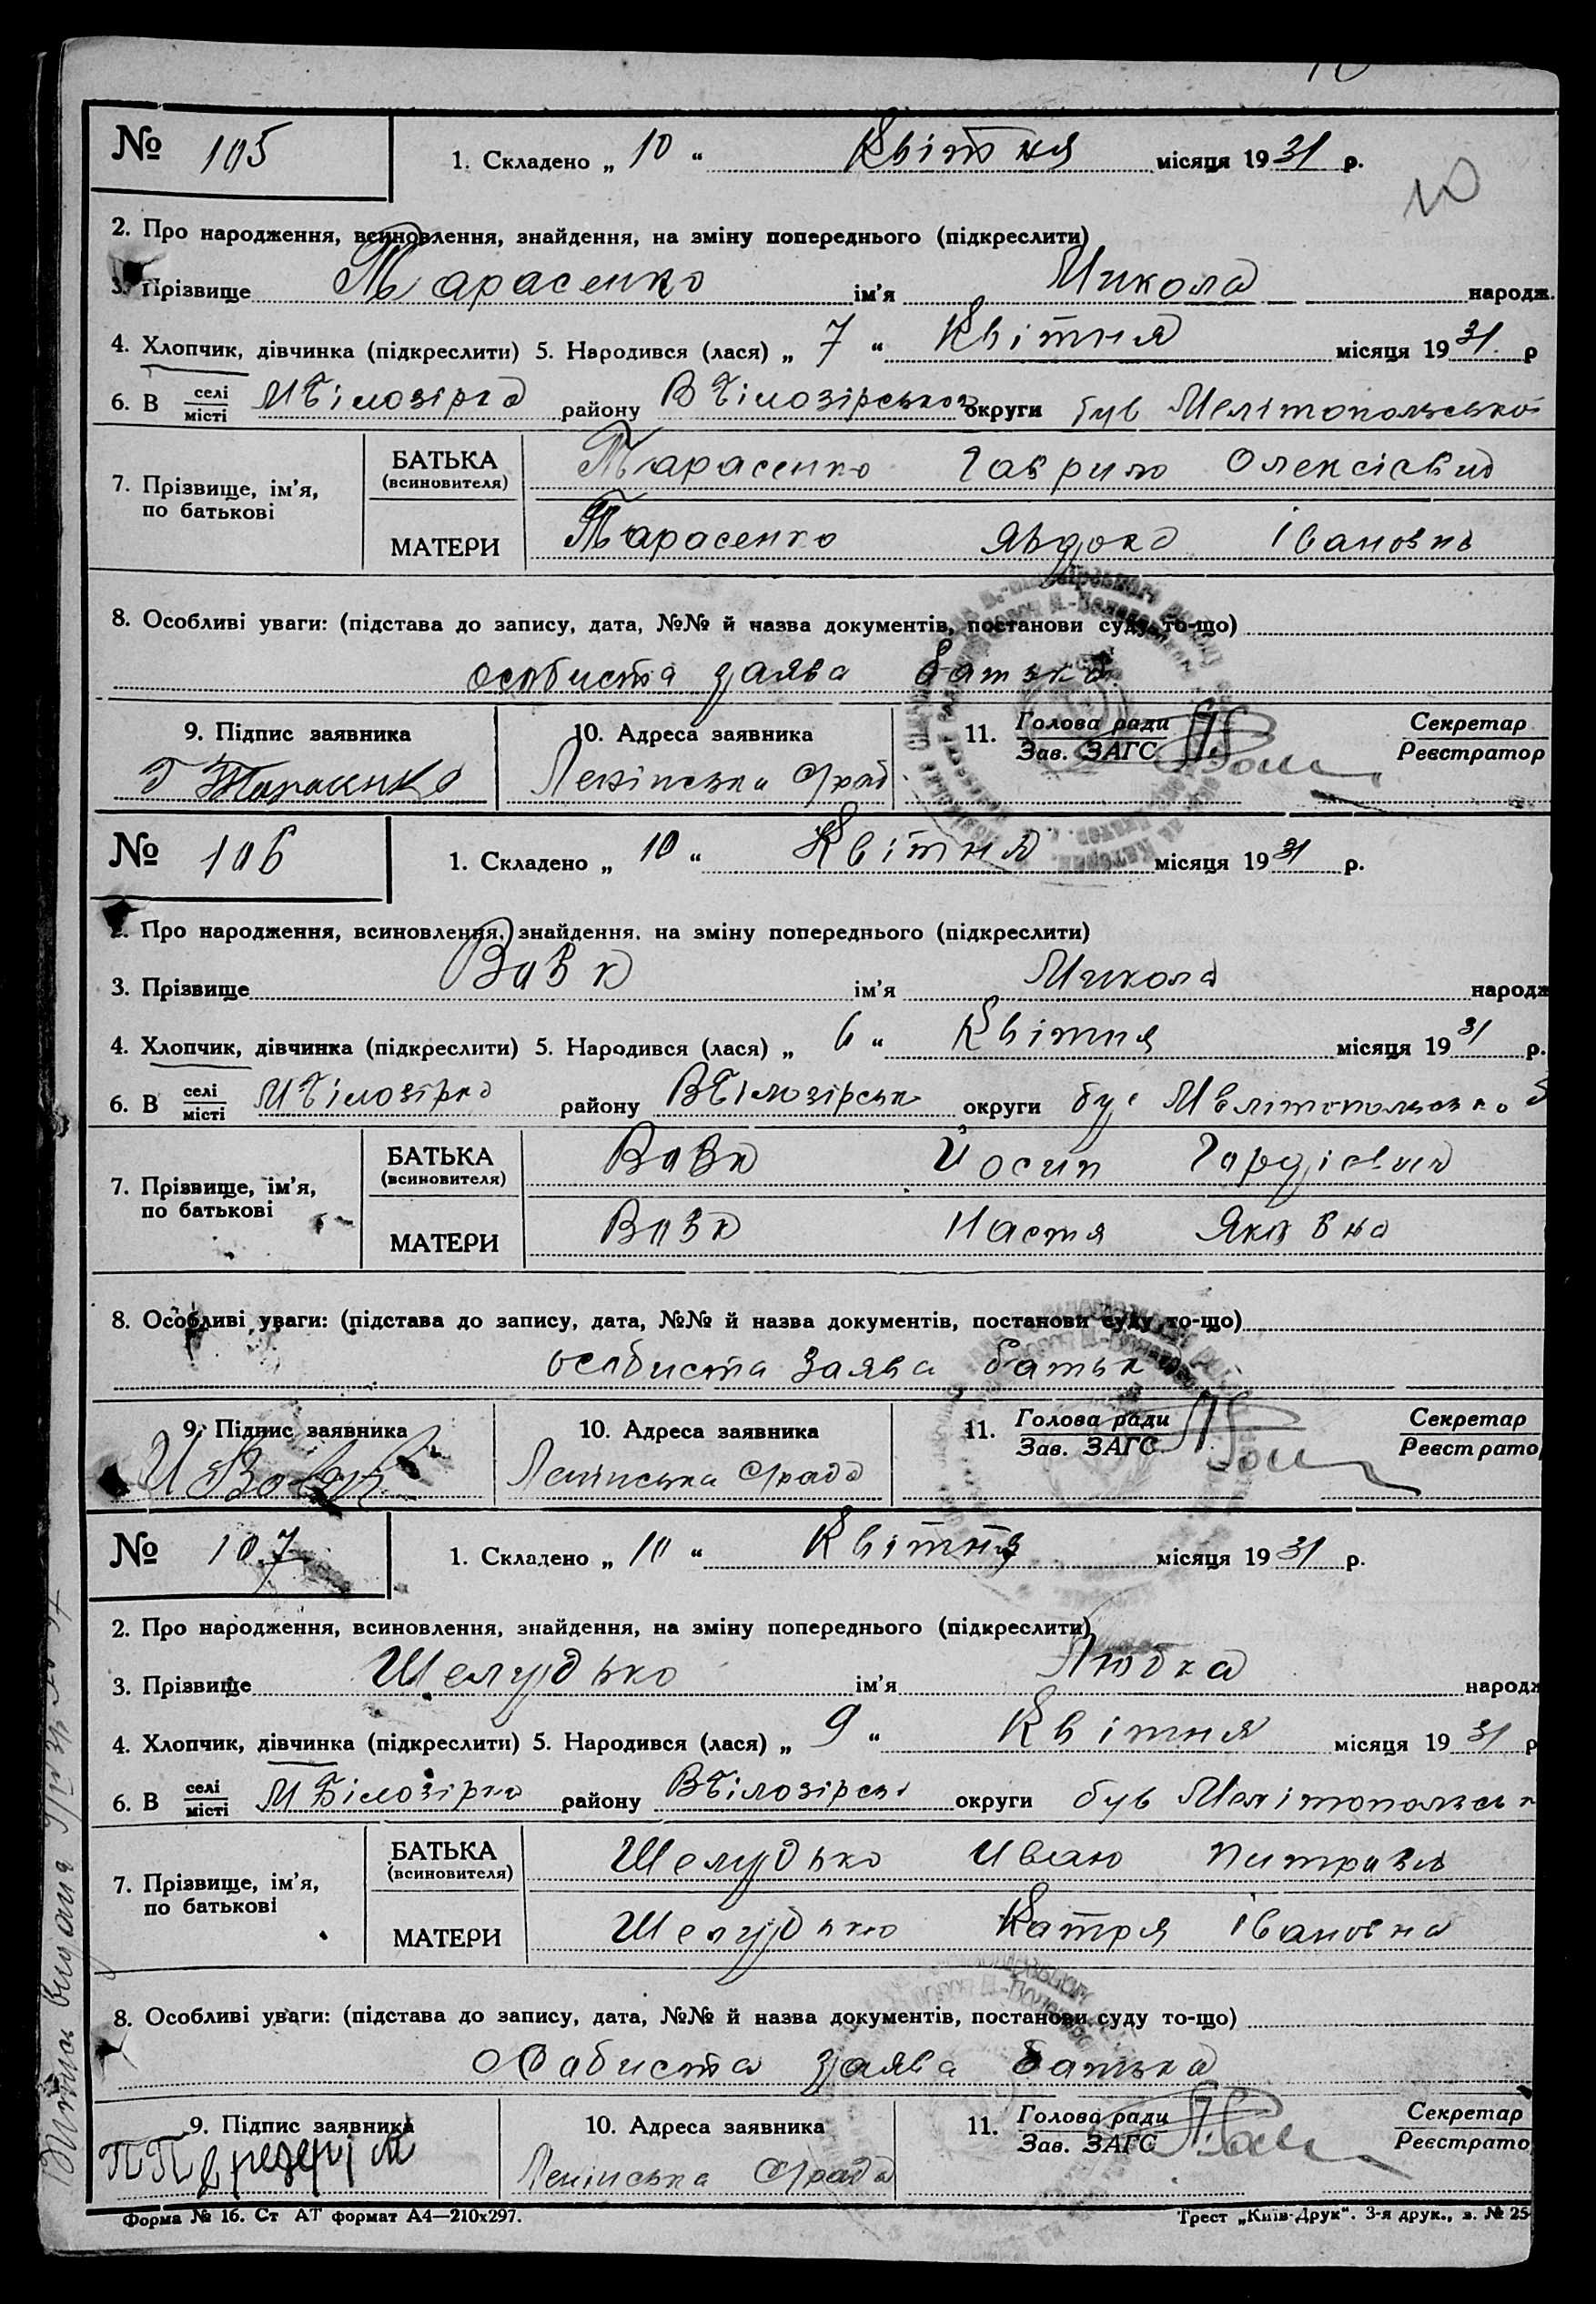 № 105 1. Складено „ 10 “ Квітня місяця 1931 р.
10
2. Про народження, всиновлення, знайдення, на зміну попереднього (підкреслити)
3. Прізвище Тарасенко ім'я Микола народж.
4. Хлопчик, дівчинка (підкреслити) 5. Народився (лася) „ 7 “ Квітня місяця 1931. р
6. В селі/місті МБілозірка району ВБілозірської округи був Мелітопольської
7. Прізвище, ім'я, по батькові
БАТЬКА (всиновителя) Тарасенко Гаврило Олексієвич
МАТЕРИ Тарасенко Явдока Івановна
8. Особливі уваги: (підстава до запису, дата, №№ й назва документів, постанови суду то-що)
особиста заява батька
9. Підпис заявника 10. Адреса заявника 11. Голова ради/Зав. ЗАГС Секретар/Реєстратор
Г Тарасенко Ленінська с/рад
№ 106 1. Складено „ 10 “ Квітня місяця 1931 р.
2. Про народження, всиновлення, знайдення, на зміну попереднього (підкреслити)
3. Прізвище Вовк ім'я Микола народж
4. Хлопчик, дівчинка (підкреслити) 5. Народився (лася) „ 6 “ Квітня місяця 1931 р.
6. В селі/місті МБілозірка району ВБілозірськ округи був Мелітопольської
7. Прізвище, ім'я, по батькові
БАТЬКА (всиновителя) Вовк Йосип Гордієвич
МАТЕРИ Вовк Настя Яковна
8. Особливі уваги: (підстава до запису, дата, №№ й назва документів, постанови суду то-що)
особиста заява батьк
9. Підпис заявника 10. Адреса заявника 11. Голова ради/Зав. ЗАГС Секретар/Реєстрато
И Вовк Ленінська с/рада
№ 107 1. Складено „ 10 “ Квітня місяця 1931 р.
2. Про народження, всиновлення, знайдення, на зміну попереднього (підкреслити)
3. Прізвище Шелудько ім'я Любка народж
4. Хлопчик, дівчинка (підкреслити) 5. Народився (лася) „ 9 “ Квітня місяця 1931 р
6. В селі/місті МБілозірка району ВБілозірсь округи був Мелітопольськ
7. Прізвище, ім'я, по батькові
БАТЬКА (всиновителя) Шелудько Иван
МАТЕРИ Шелудько Катря Івановна
8. Особливі уваги: (підстава до запису, дата, №№ й назва документів, постанови суду то-що)
особиста заява батька
9. Підпис заявника 10. Адреса заявника 11. Голова ради/Зав. ЗАГС Секретар/Реєстрато
Ленінська с/рада
Форма № 16. Ст АТ формат А4—210х297. Трест „Київ-Друк“. 3-я друк., з. № 25